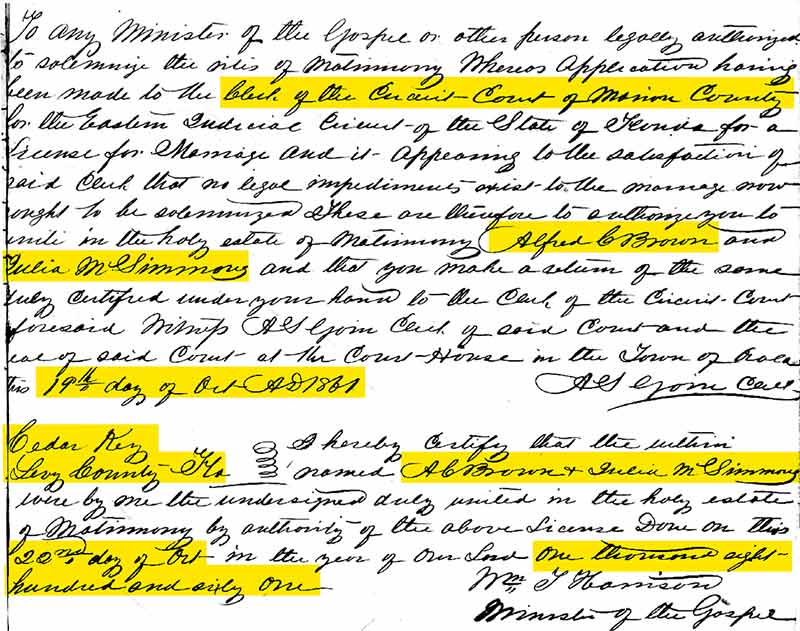 To any Minister of the Gospel or other person legally authorized
to solemnize the rites of Matrimony Whereas Application having
been made to the Clerk of the Circuit Court of Marion County
for the Eastern Judicial Circuit of the State of Florida for a
License for Marriage and it appearing to the satisfaction of
said Clerk that no legal impediments exist to the marriage now
ought to be solemnized These are therefore to authorize you to
unite in the holy estate of Matrimony Alfred C Brown and
Julia McSimmons and that you make a return of the same
duly certified under your hand to the Clerk of the Circuit Court
foresaid Witness A S Clerk of said Court and the
eal of said Court at the Court House in the Town of Ocala
this 19th day of Oct AD 1861
A S Clerk
Cedar Key
Levy County Fla
I hereby certify that the within
named A C Brown & Julia McSimmons
were by me the undersigned duly united in the holy estate
of Matrimony by authority of the above License Done on this
22nd day of Oct in the year of Our Lord One thousand eight
hundred and sixty One
Wm T Harrison
Minister of the Gospel